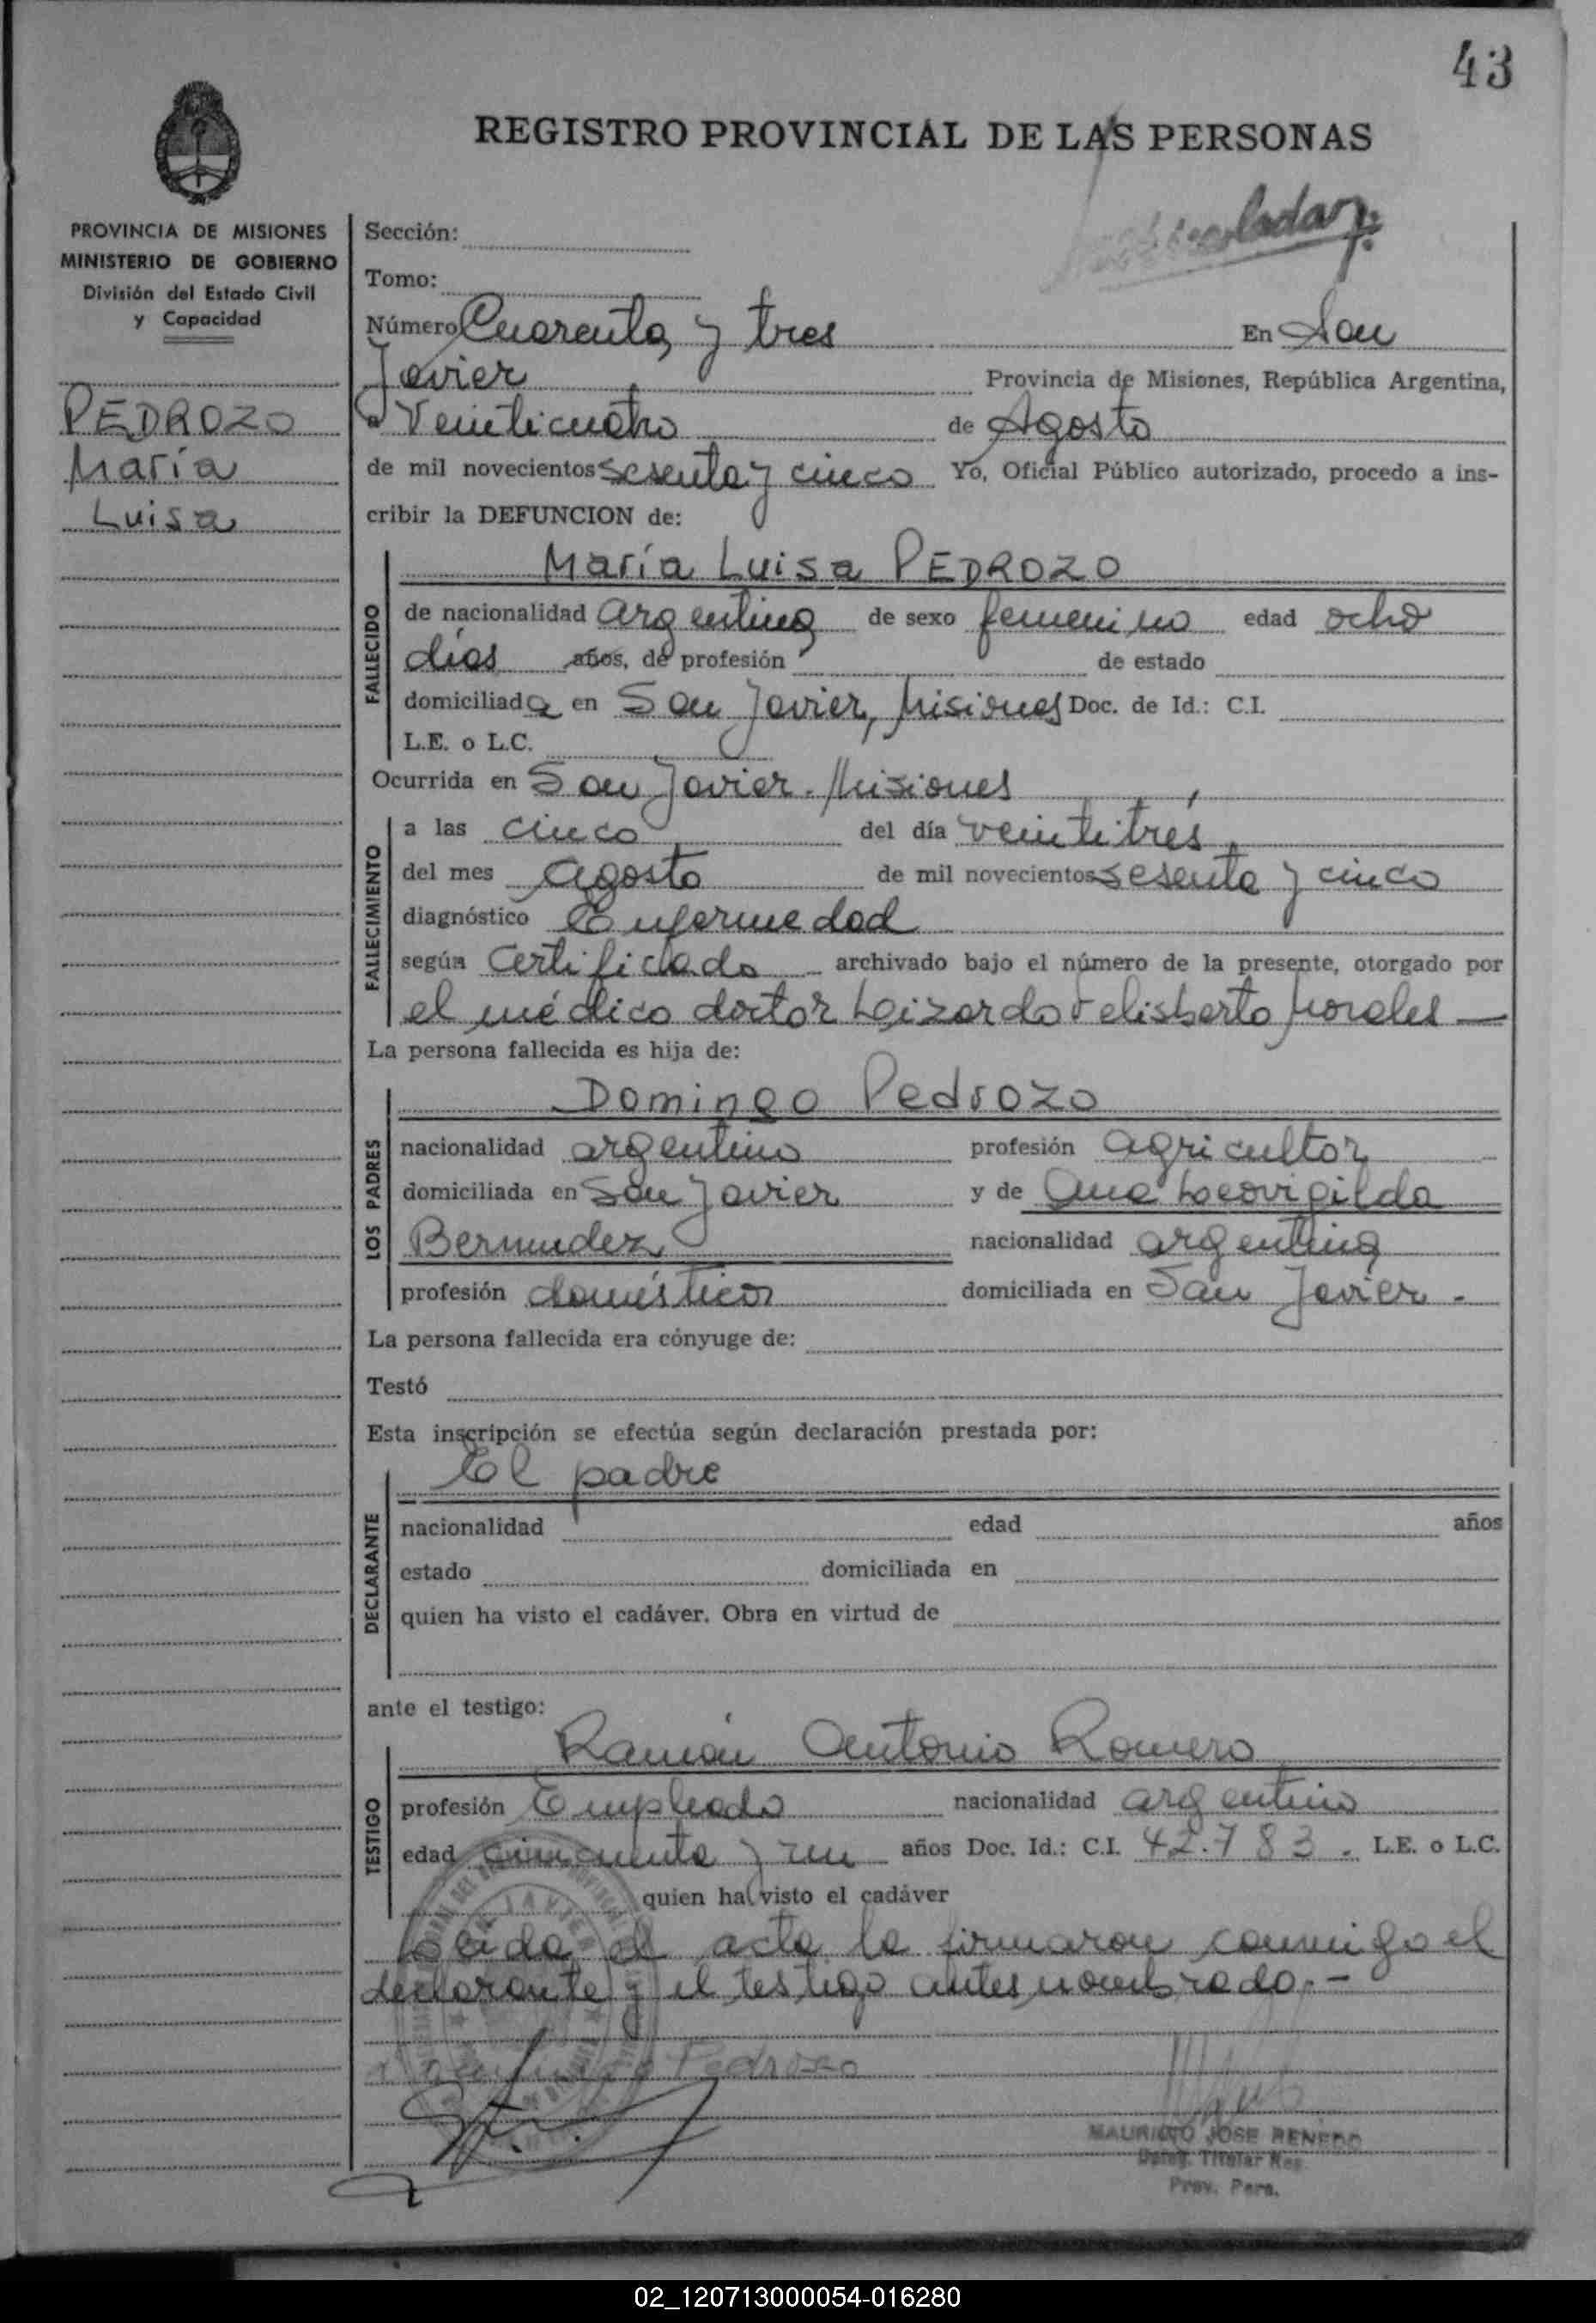 43
REGISTRO PROVINCIAL DE LAS PERSONAS
PROVINCIA DE MISIONES
MINISTERIO DE GOBIERNO
División del Estado Civil
y Capacidad
PEDROZO
María
Luisa
Sección:
Tomo:
Número Cuarenta y tres En San
Javier Provincia de Misiones, República Argentina,
a Veinticuatro de Agosto
de mil novecientos sesenta y cinco Yo, Oficial Público autorizado, procedo a ins-
cribir la DEFUNCION de:
María Luisa PEDROZO
FALLECIDO
de nacionalidad argentina de sexo femenino edad ocho
días años, de profesión de estado
domiciliada en San Javier, Misiones Doc. de Id.: C.I.
L.E. o L.C.
Ocurrida en San Javier. Misiones
FALLECIMIENTO
a las cinco del día veintitrés
del mes agosto de mil novecientos sesenta y cinco
diagnóstico Enfermedad
según certificado archivado bajo el número de la presente, otorgado por
el médico doctor Felisberto Morales —
La persona fallecida es hija de:
Domingo Pedrozo
LOS PADRES
nacionalidad argentino profesión agricultor
domiciliada en San Javier y de Ana Leovigilda
Bermudez nacionalidad argentina
profesión doméstica domiciliada en San Javier.
La persona fallecida era cónyuge de:
Testó
Esta inscripción se efectúa según declaración prestada por:
El padre
DECLARANTE
nacionalidad edad años
estado domiciliada en
quien ha visto el cadáver. Obra en virtud de
ante el testigo:
Ramón Antonio Romero
TESTIGO
profesión Empleado nacionalidad argentino
edad cincuenta y un años Doc. Id.: C.I. 42.783. L.E. o L.C.
quien ha visto el cadáver
Leida el acta la firmaron conmigo el
declarante y el testigo antes nombrado.-
Pedrozo
MAURICIO JOSE RENEDO
Titular Reg.
Prov. Pers.
02_120713000054-016280